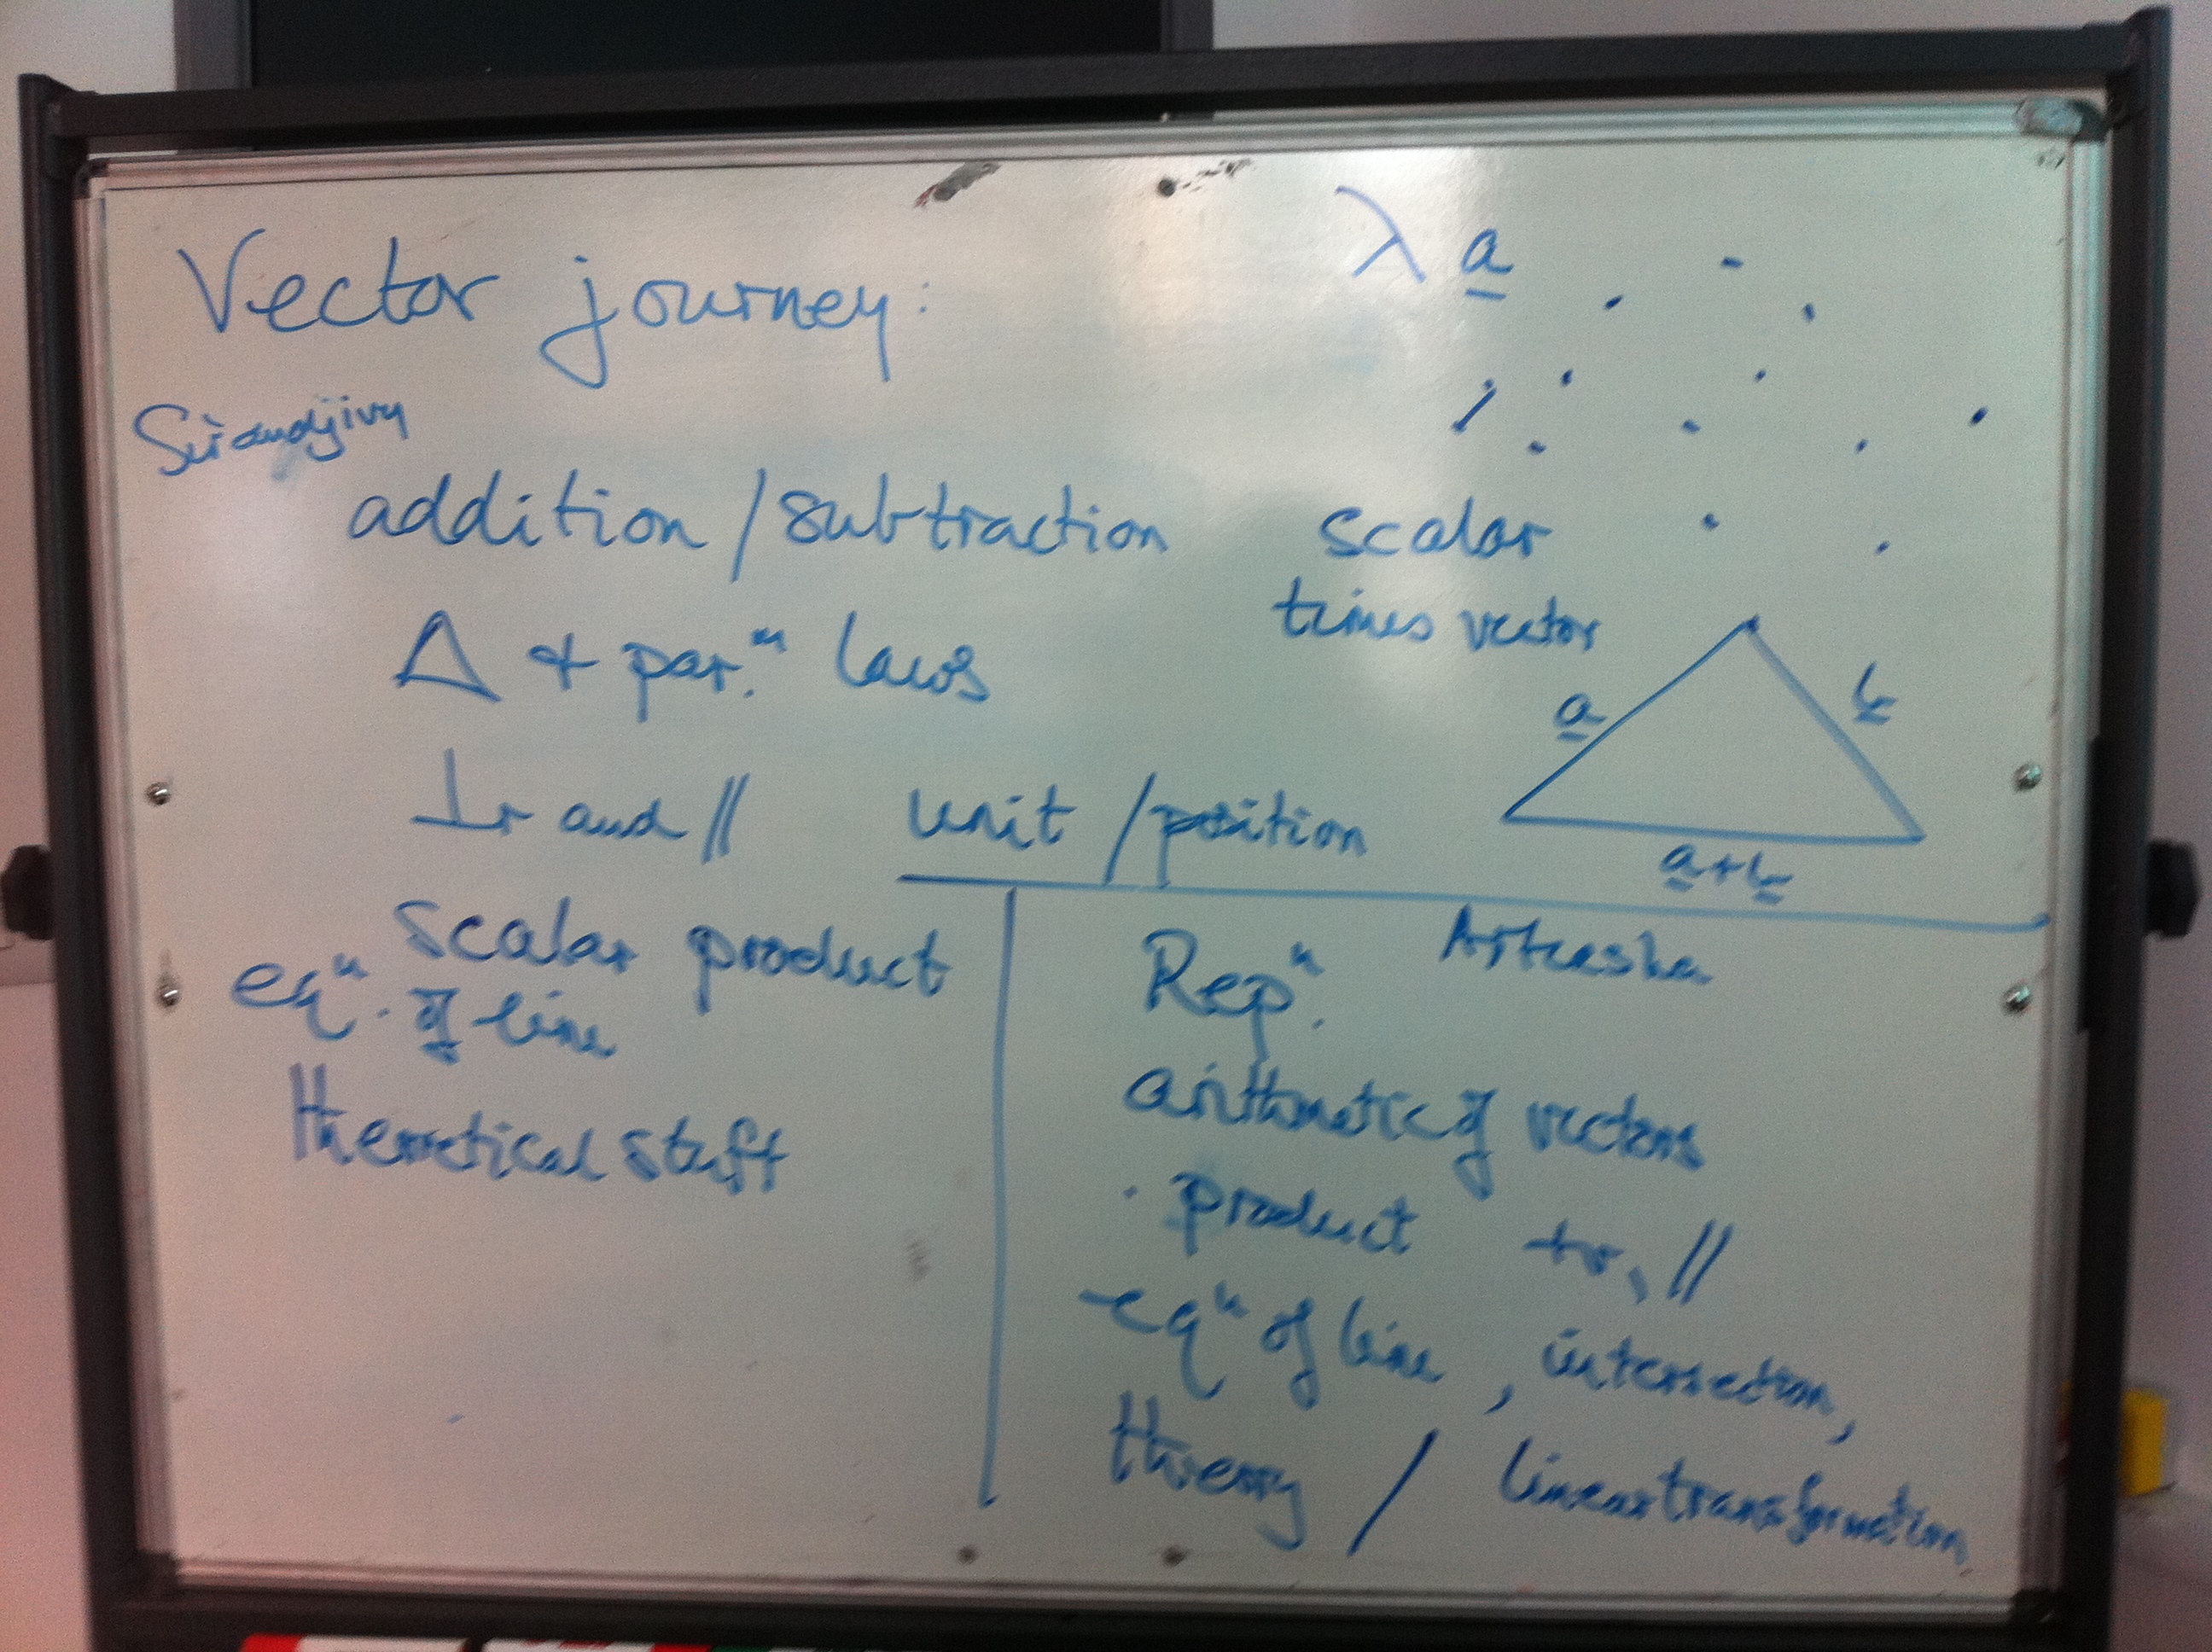 Vector journey:
λ a
addition / subtraction
scalar
times vector
Δ + par.ᵐ laws
a
b
a+b
⊥r and //
unit / position
scalar product
eqⁿ. of line
theoretical stuff
Repⁿ.
arithmetic of vectors
. product
//
eqⁿ of line, intersection,
theory / linear transformation